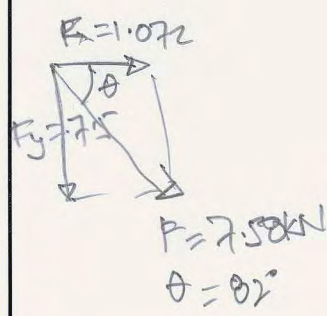 Fx=1.072
θ
Fy=7.5
F=7.58kN
θ=82°